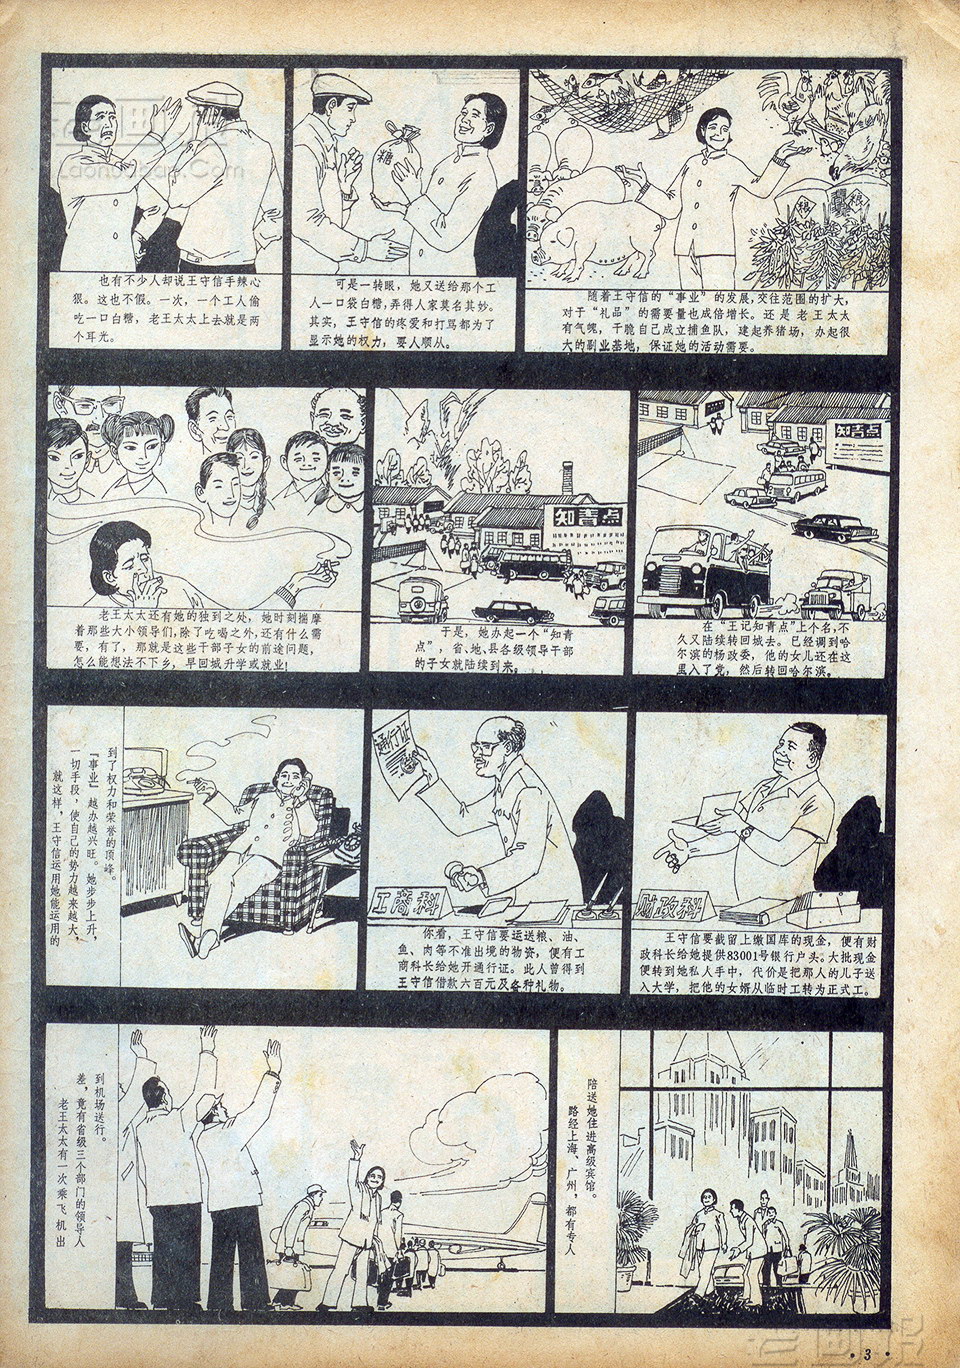 老画报
Laohuabao.Com
也有不少人却说王守信手辣心
狠。这也不假。一次，一个工人偷
吃一口白糖，老王太太上去就是两
个耳光。
糖
可是一转眼，她又送给那个工
人一口袋白糖，弄得人家莫名其妙。
其实，王守信的疼爱和打骂都为了
显示她的权力，要人顺从。
粮
随着王守信的“事业”的发展，交往范围的扩大，
对于“礼品”的需要量也成倍增长。还是老王太太
有气魄，干脆自己成立捕鱼队，建起养猪场，办起很
大的副业基地，保证她的活动需要。
老王太太还有她的独到之处，她时刻揣摩
着那些大小领导们，除了吃喝之外，还有什么需
要，有了，那就是这些干部子女的前途问题，
怎么能想法不下乡，早回城升学或就业！
知青点
于是，她办起一个“知青
点”，省、地、县各级领导干部
的子女就陆续到来。
知青点
在“王记知青点”上个名，不
久又陆续转回城去。已经调到哈
尔滨的杨政委，他的女儿还在这
里入了党，然后转回哈尔滨。
就这样，王守信运用她能运用的
一切手段，使自己的势力越来越大，
『事业』越办越兴旺。她步步上升，
到了权力和荣誉的顶峰。
通行证
工商科
你看，王守信要运送粮、油、
鱼、肉等不准出境的物资，便有工
商科长给她开通行证。此人曾得到
王守信借款六百元及各种礼物。
财政科
王守信要截留上缴国库的现金，便有财
政科长给她提供83001号银行户头。大批现金
便转到她私人手中，代价是把那人的儿子送
入大学，把他的女婿从临时工转为正式工。
老王太太有一次乘飞机出
差，竟有省级三个部门的领导人
到机场送行。
路经上海、广州，都有专人
陪送她住进高级宾馆。
老画报
·3·